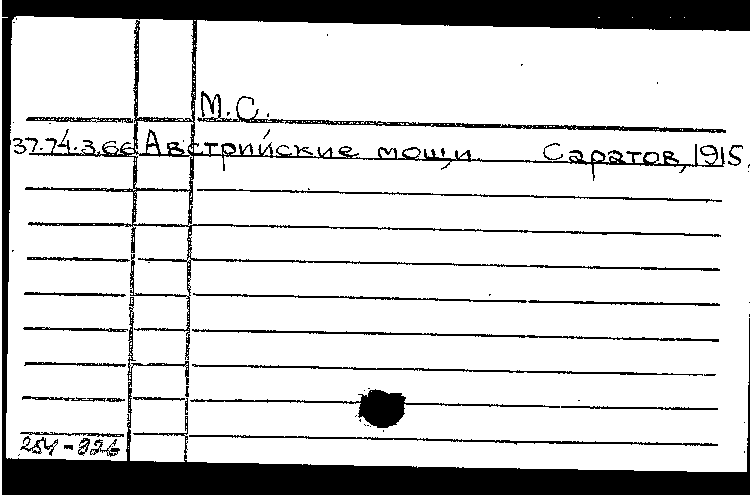 М.С.
37.74.3.66 Австрийские мощи Саратов, 1915.